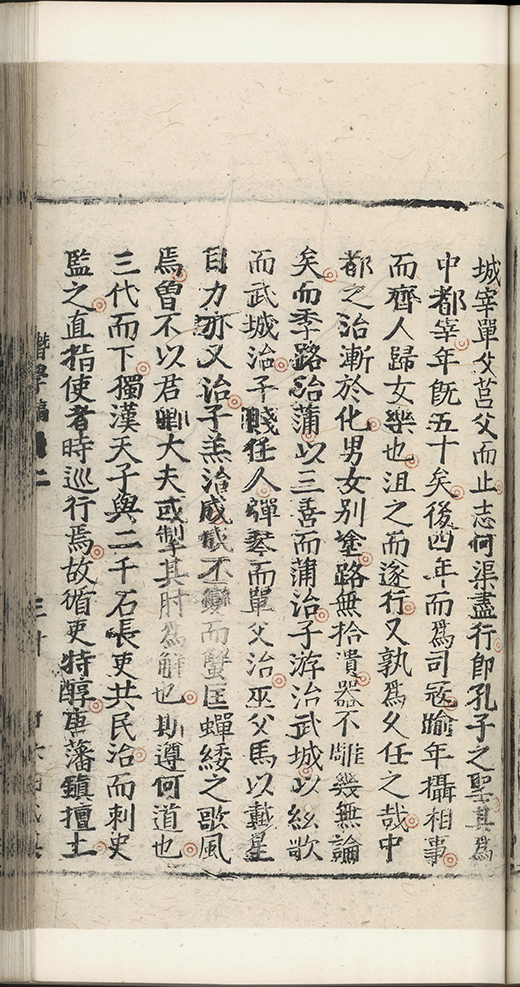 城宰單父莒父而止志何渠盡行即孔子之聖其爲
中都宰年既五十矣後四年而爲司冦踰年攝相事
而齊人歸女樂也沮之而遂行又孰爲久任之哉中
都之治漸於化男女別塗路無拾遺器不雕幾無論
矣而季路治蒲以三善而蒲治子游治武城以絃歌
而武城治子賤任人彈琴而單父治巫父馬以戴星
目力亦又治子羔治成成不變而蟹匡蟬緌之歌風
焉曾不以君卿大夫或掣其肘爲解也斯遵何道也
三代而下獨漢天子與二千石長吏共民治而刺史
監之直指使者時巡行焉故循吏特醇唐藩鎮擅土